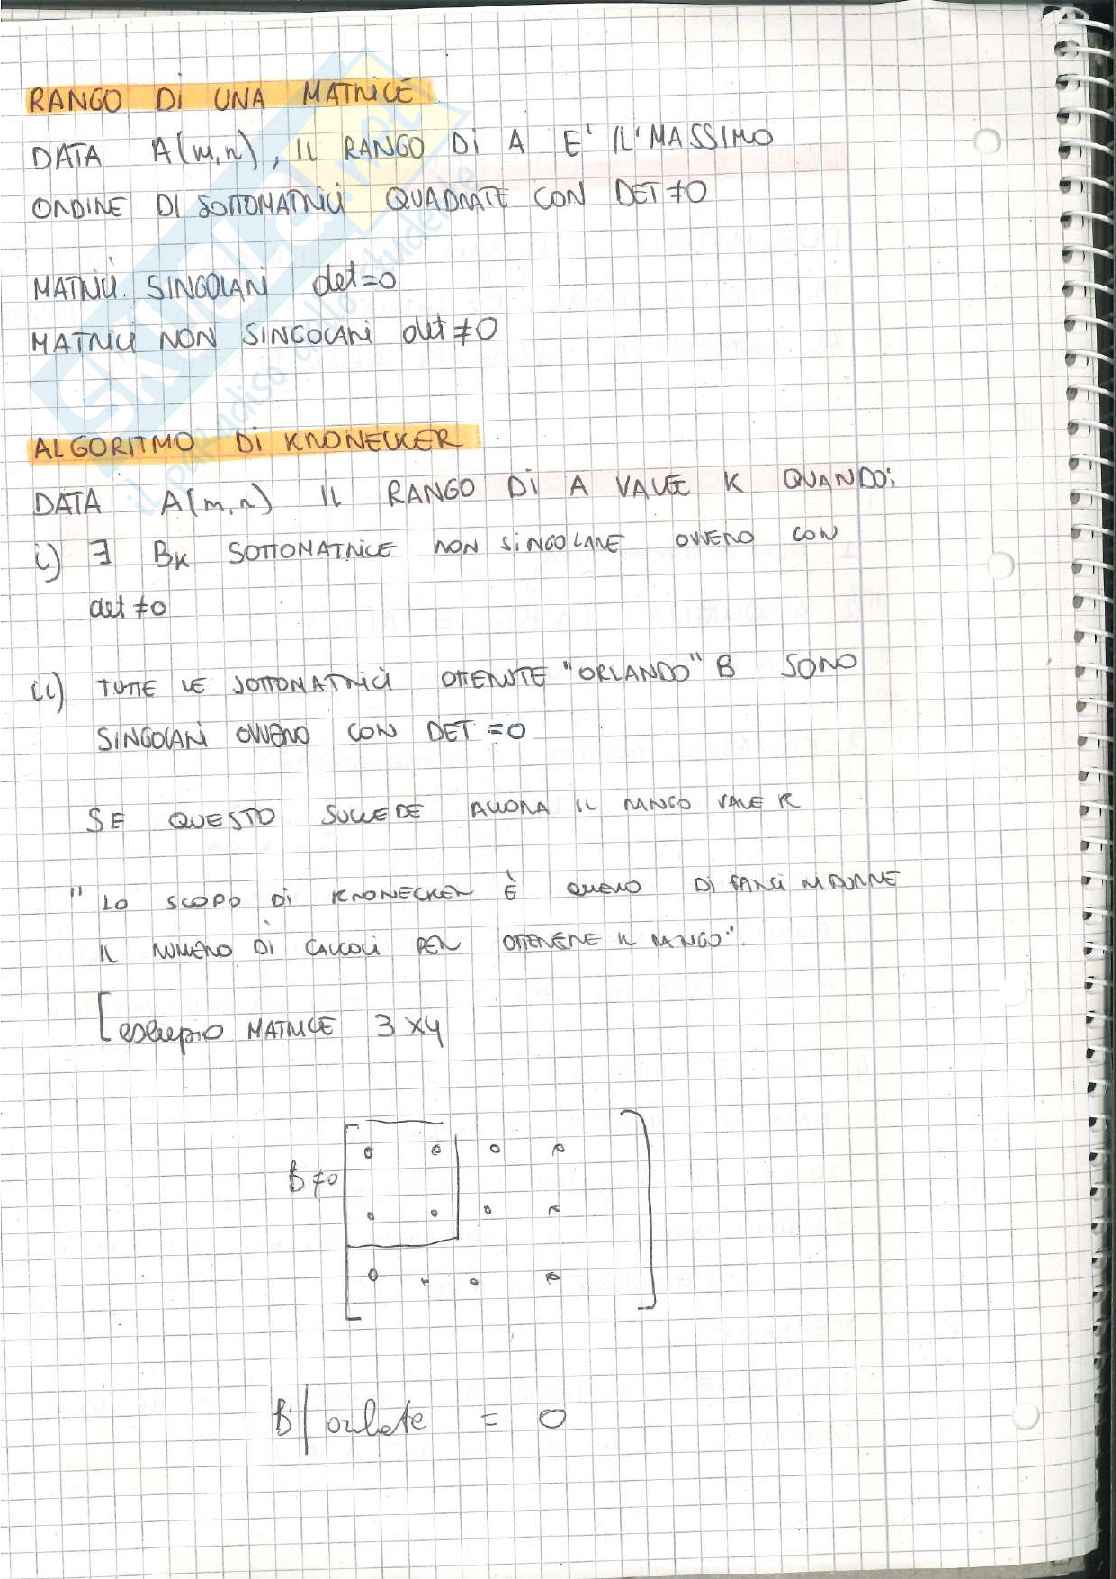 RANGO DI UNA MATRICE
DATA A(m,n), IL RANGO DI A E' IL MASSIMO
ORDINE DI SOTTOMATRICI QUADRATE CON DET ≠0
MATRICI SINGOLARI det=0
MATRICI NON SINGOLARI det ≠0
ALGORITMO DI KRONECKER
DATA A(m,n) IL RANGO DI A VALE K QUANDO:
i) ∃ Bk SOTTOMATRICE NON SINGOLARE OVVERO CON
det ≠0
ii) TUTTE LE SOTTOMATRICI OTTENUTE "ORLANDO" B SONO
SINGOLARI OVVERO CON DET =0
SE QUESTO SUCCEDE ALLORA IL RANGO VALE K
"LO SCOPO DI KRONECKER È QUELLO DI FARCI RIDURRE
IL NUMERO DI CALCOLI PER OTTENERE IL RANGO".
[esempio MATRICE 3x4
B≠0
B/orlate = 0
SKUOLA.NET
il paradiso dello studente